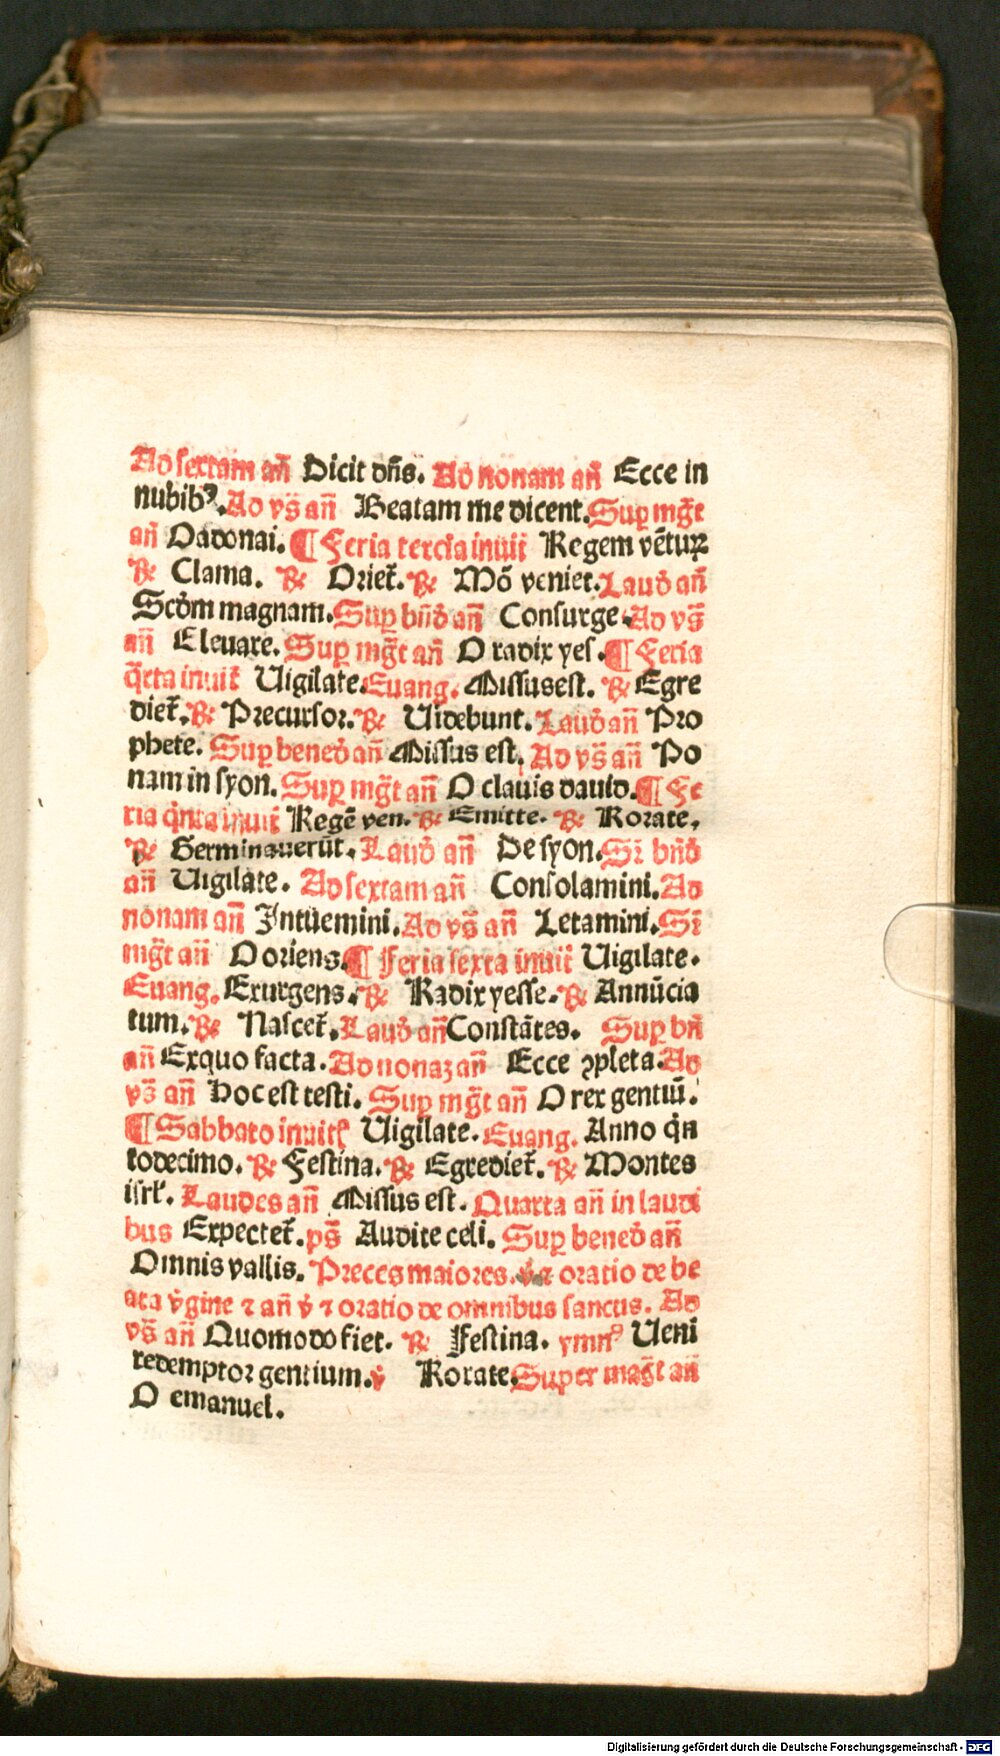 Ad sextam añ Dicit dñs. Ad nonam añ Ecce in
nubibꝰ. Ad vs̃ añ Beatam me dicent. Suꝑ mg̃t
añ O adonai. ¶ Feria tercia inuit̃ Regem vẽtuꝝ
℞ Clama. ℞ Oriet̃. ℞ Mõ veniet. Laud̉ añ
Scd̉m magnam. Suꝑ bñd̉ añ Consurge. Ad vs̃
añ Eleuare. Suꝑ mg̃t añ O radix yes. ¶ Feria
q̃rta inuit̃ Uigilate. Euang. Missus est. ℞ Egre
diet̃. ℞ Precursor. ℞ Uidebunt. Laud̉ añ Pro
phete. Suꝑ bened̉ añ Missus est. Ad vs̃ añ Po
nam in syon. Suꝑ mg̃t añ O clauis dauid. ¶ Fe
ria q̇nta inuit̃ Regẽ ven. ℞ Emitte. ℞ Rorate.
℞ Germinauerũt. Laud̉ añ De syon. Sr̃ bñd̉
añ Uigilate. Ad sextam añ Consolamini. Ad
nonam añ Intuemini. Ad vs̃ añ Letamini. Sr̃
mg̃t añ O oriens. ¶ Feria sexta inuit̃ Uigilate.
Euang. Exurgens. ℞ Radix yesse. ℞ Annũcia
tum. ℞ Nascet̃. Laud̉ añ Constãtes. Suꝑ bñ
añ Ex quo facta. Ad nonaȝ añ Ecce ꝯpleta. Ad
vs̃ añ Hoc est testi. Suꝑ mg̃t añ O rex gentiũ.
¶ Sabbato inuit̃ Uigilate. Euang. Anno q̇n
todecimo. ℞ Festina. ℞ Egrediet̃. ℞ Montes
isrl̃. Laudes añ Missus est. Quarta añ in laudi
bus Expectet̃. ps̃ Audite celi. Suꝑ bened̉ añ
Omnis vallis. Preces maiores. v̇ ⁊ oratio de be
ata v̇gine ⁊ añ v̇ ⁊ oratio de omnibus sanctis. Ad
vs̃ añ Quomodo fiet. ℞ Festina. ymnꝰ Ueni
redemptor gentium. v̇ Rorate. Super mag̃t añ
O emanuel.
Digitalisierung gefördert durch die Deutsche Forschungsgemeinschaft - DFG